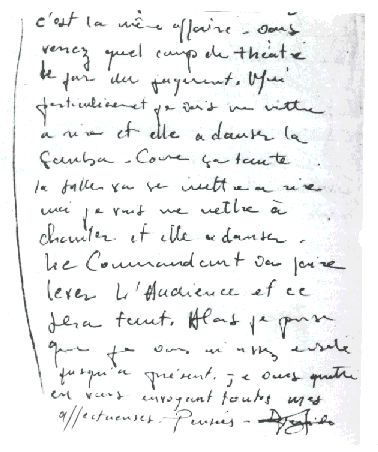 c'est la même affaire. vous
verrez quel coup de théatre
le jour du jugement. Moi
particulièrement je vais me mettre
a rire et elle a danser la
Samba. Comme ça toute
la salle va se mettre a rire
moi je vais me mettre à
chanter et elle a danser.
Le Commandant va faire
lever L'Audience et ce
sera tout. Alors je pense
que je vous ai assez
jusqu'a présent. je vous quitte
en vous envoyant toutes mes
affectueuses Pensées -